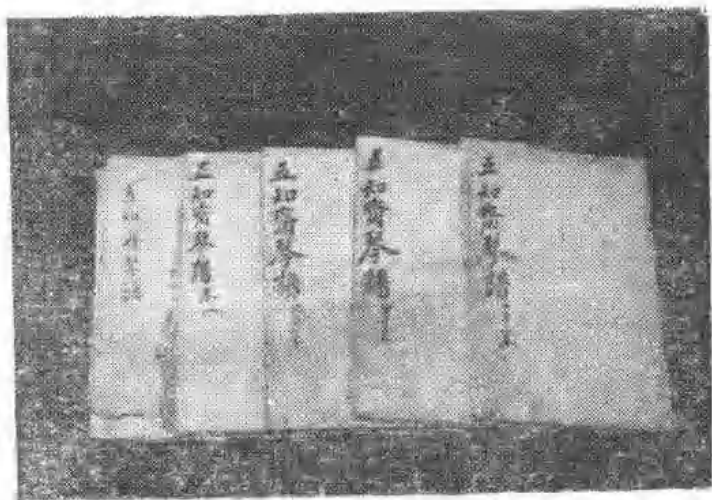 五知齋琴譜
五知齋琴譜
五知齋琴譜
五知齋琴譜
五知齋琴譜